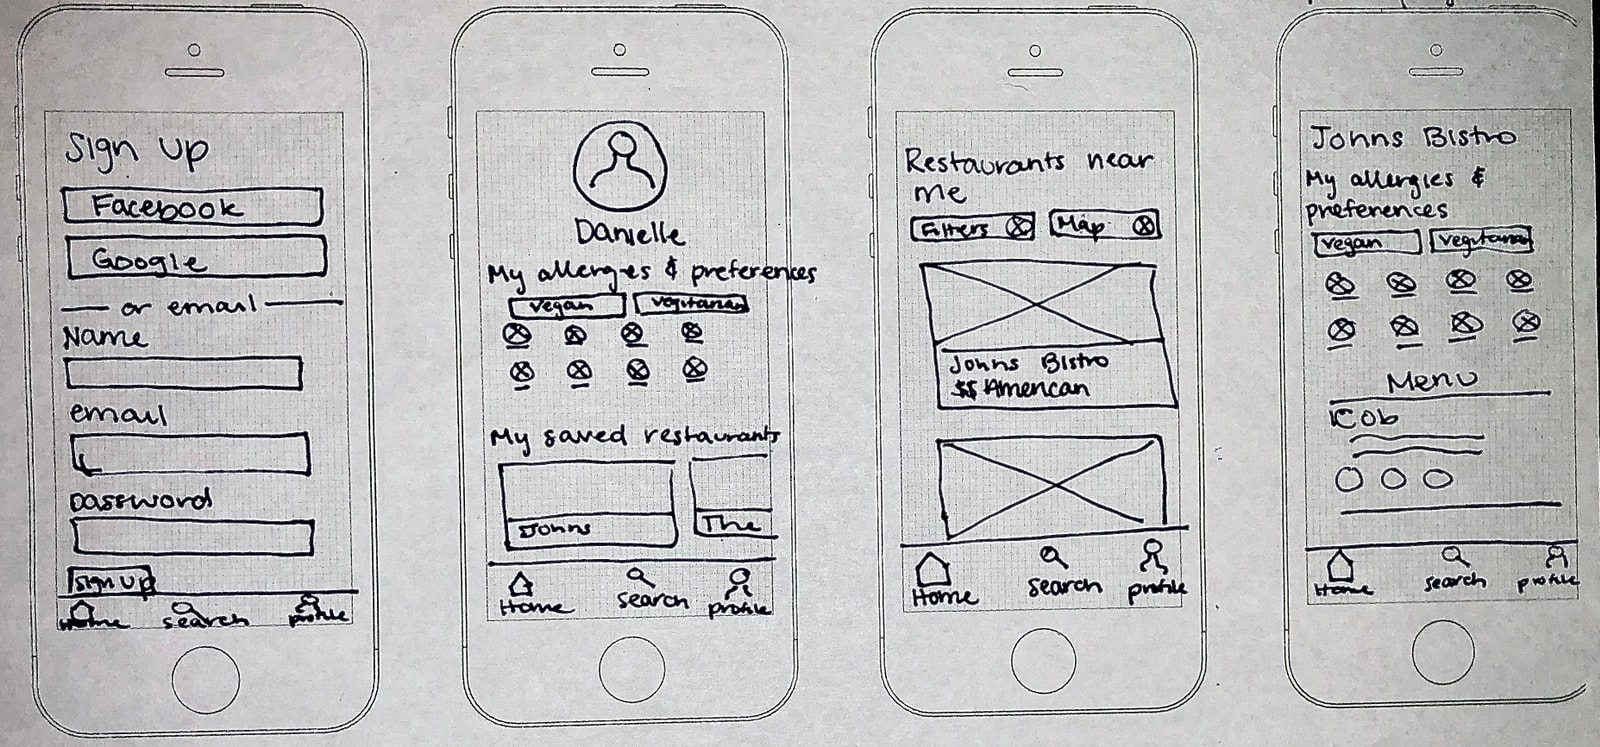 Sign up
Facebook
Google
or email
Name
email
password
sign up
Home search profile
Danielle
My allergies & preferences
vegan vegitarian
My saved restaurants
Johns The
Home search profile
Restaurants near
me
Filters Map
Johns Bistro
$$ American
Home search profile
Johns Bistro
My allergies &
preferences
vegan vegitarian
Menu
Cob
Home search profile